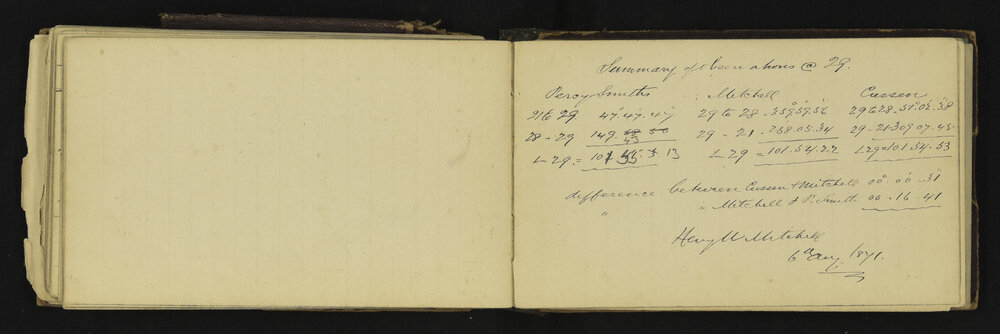 Summary of observations @ 29.
Percy Smiths . Mitchell Cussen
21 to 29 47.47.47 29 to 28 - 359.59.56 29 to 28 - 51.02.38
28 - 29 149. 29 - 21 - 258.05.34 29 - 21 309.07.45
L 29 = L 29 = 101.54.22 L 29 = 101.54.53
difference between Cussen & Mitchell 00.00.31
" " Mitchell & P. Smith 00.16.41
Henry W Mitchell
6th Aug. 1871.